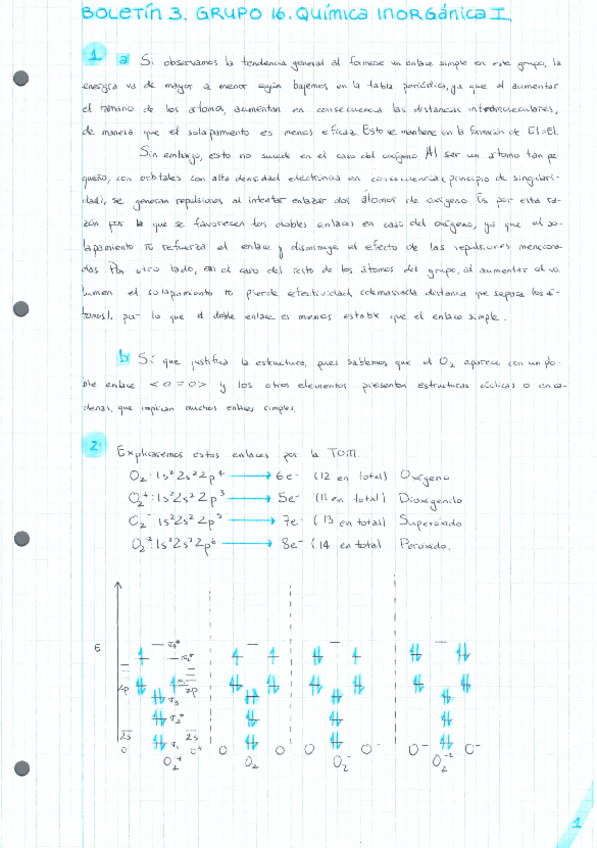 BOLETÍN 3. GRUPO 16. QUÍMICA INORGÁNICA I.
1 a Si observamos la tendencia general al formarse un enlace simple en este grupo, la
energía va de mayor a menor según bajemos en la tabla periódica, ya que al aumentar
el tamaño de los átomos, aumentan en consecuencia las distancias intermoleculares,
de manera que el solapamiento es menos eficaz. Esto se mantiene en la formación de El=El.
Sin embargo, esto no sucede en el caso del oxígeno. Al ser un átomo tan pe
queño, con orbitales con alta densidad electrónica en consecuencia (principio de singulari-
dad), se generan repulsiones al intentar enlazar dos átomos de oxígeno. Es por esta ra-
zón por la que se favorecen los dobles enlaces en caso del oxígeno, ya que el so-
lapamiento π refuerza el enlace y disminuye el efecto de las repulsiones menciona-
das. Por otro lado, en el caso del resto de los átomos del grupo, al aumentar el vo-
lumen el solapamiento π pierde efectividad (demasiada distancia que separa los á-
tomos), por lo que el doble enlace es menos estable que el enlace simple.
b Sí que justifica la estructura, pues sabemos que el O₂ aparece con un do-
ble enlace <O=O> y los otros elementos presentan estructuras cíclicas o en ca-
denas, que implican muchos enlaces simples.
2 Explicaremos estos enlaces por la TOM.
O₂: 1s² 2s² 2p⁴ → 6e⁻ (12 en total) Oxígeno
O₂⁺: 1s² 2s² 2p³ → 5e⁻ (11 en total) Dioxigenilo
O₂⁻: 1s² 2s² 2p⁵ → 7e⁻ (13 en total) Superóxido
O₂⁻²: 1s² 2s² 2p⁶ → 8e⁻ (14 en total Peróxido.
E
2p 2p
2s 2s
O O⁺ O O O O⁻ O⁻ O⁻
O₂⁺ O₂ O₂⁻ O₂⁻²
1